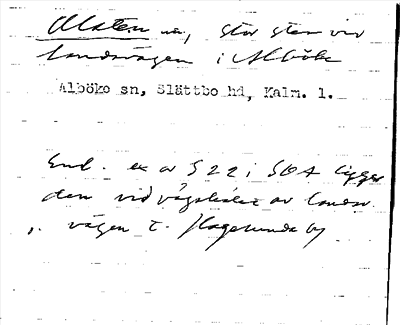 Alsten na, stor sten vid
landsvägen i Alböke
Alböko sn, Slättbo hd, Kalm. l.
Enl. ex av S 22 i SOA ligger
den vid vägskälet av landsv.
vägen t. Hagelunda by